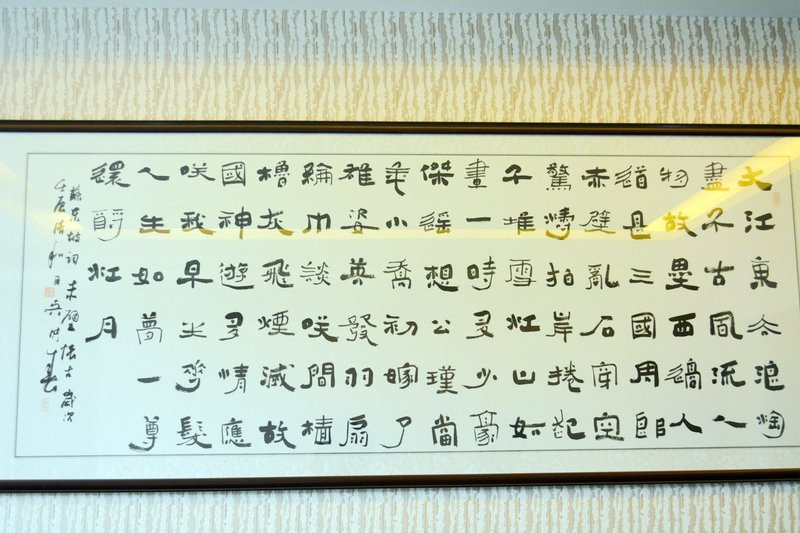 大江東去浪淘
盡千古風流人
物故壘西邊人
道是三國周郎
赤壁亂石穿空
驚濤拍岸捲起
千堆雪江山如
畫一時多少豪
傑遙想公瑾當
年小喬初嫁了
雄姿英發羽扇
綸巾談咲間檣
櫓灰飛煙滅故
國神遊多情應
咲我早生華髮
人生如夢一尊
還酹江月
蘇東坡詞赤壁懷古歲次
壬辰清和月